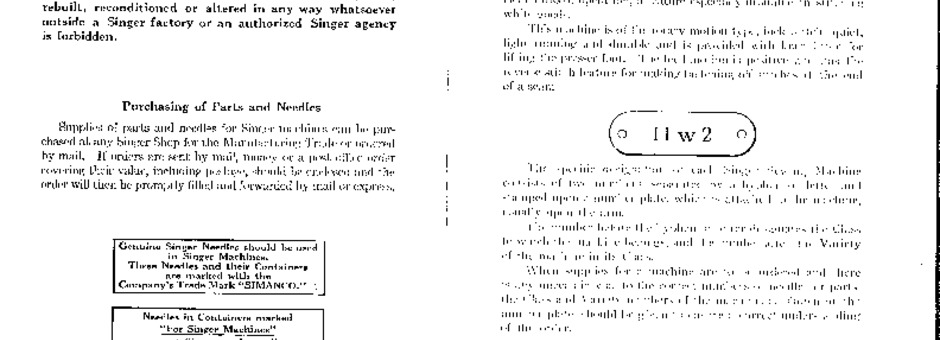 rebuilt, reconditioned or altered in any way whatsoever
outside a Singer factory or an authorized Singer agency
is forbidden.
Purchasing of Parts and Needles
Supplies of parts and needles for Singer machines can be pur-
chased at any Singer Shop for the Manufacturing Trade or ordered
by mail. If orders are sent by mail, money or a post office order
covering their value, including postage, should be enclosed and the
order will then be promptly filled and forwarded by mail or express.
Genuine Singer Needles should be used
in Singer Machines.
These Needles and their Containers
are marked with the
Company's Trade Mark "SIMANCO."
Needles in Containers marked
"For Singer Machines"
white goods.
This machine is of the rotary motion type, lock stitch, quiet,
light running and durable and is provided with knee lifter for
lifting the presser foot. The feed motion is positive and has the
reverse stitch feature for making fastening off stitches at the end
of a seam.
11w2
The specific designation of each Singer Sewing Machine
consists of two numbers separated by a hyphen or letter and
stamped upon a number plate, which is attached to the machine,
usually upon the arm.
The number before the hyphen or letter designates the Class
to which the machine belongs, and the number after the Variety
of the machine in its Class.
When supplies for a machine are to be ordered and there
is any uncertainty as to the correct numbers of needles or parts,
the Class and Variety numbers of the machine as shown on the
number plate should be given to ensure correct understanding
of the order.